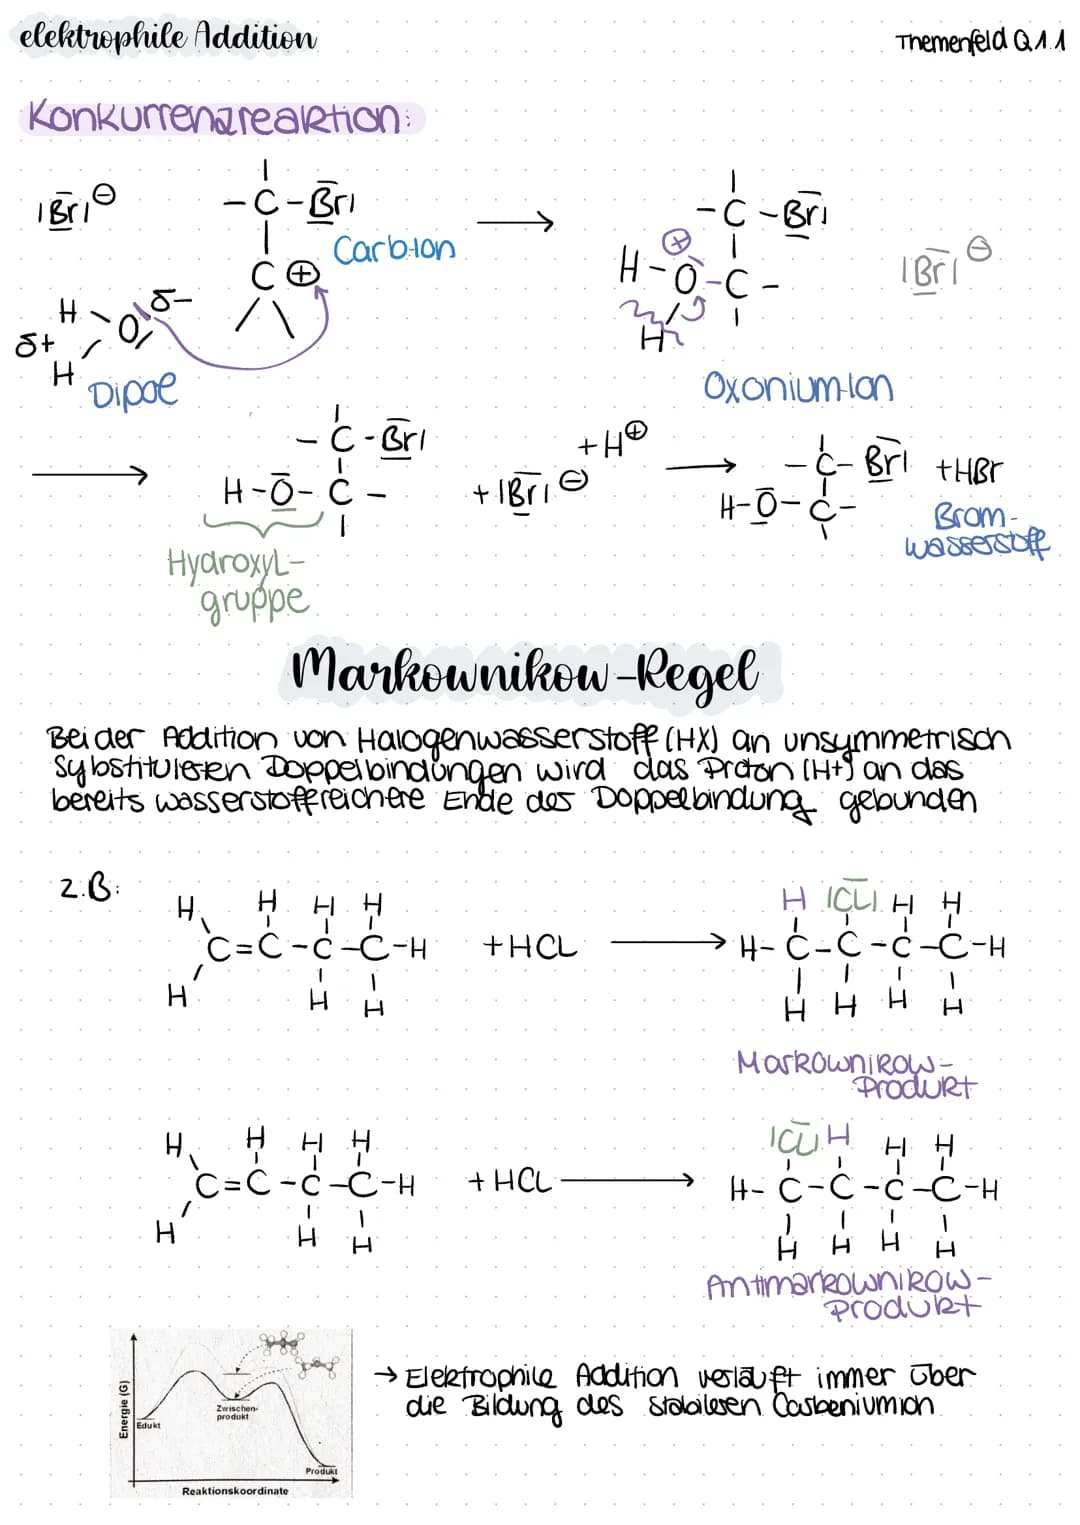 elektrophile Addition
Themenfeld Q1.1
Konkurrenzreaktion:
|Br|⊖
-C-Br|
Carb-Ion
C⊕
H δ-
δ+ O
H
Dipole
-C-Br|
H-O-C-
⊕
H
|Br|⊖
Oxonium-Ion
-C-Br|
H-O-C-
+|Br|⊖
+H⊕
-C-Br|
H-O-C-
+HBr
Brom-
wasserstoff
Hydroxyl-
gruppe
Markownikow-Regel
Bei der Addition von Halogenwasserstoff (HX) an unsymmetrisch
Sybstituierten Doppelbindungen wird das Proton (H+) an das
bereits wasserstoffreichere Ende der Doppelbindung gebunden
z.B:
H H H H
C=C-C-C-H +HCL
H H H
H |CL| H H
H-C-C-C-C-H
H H H H
Markownikow-
Produkt
H H H H
C=C-C-C-H +HCL
H H H
|CL| H H H
H-C-C-C-C-H
H H H H
Antimarkownikow-
Produkt
Energie (G)
Edukt
Zwischen-
produkt
Produkt
Reaktionskoordinate
→ Elektrophile Addition verläuft immer über
die Bildung des stabileren Carbeniumion